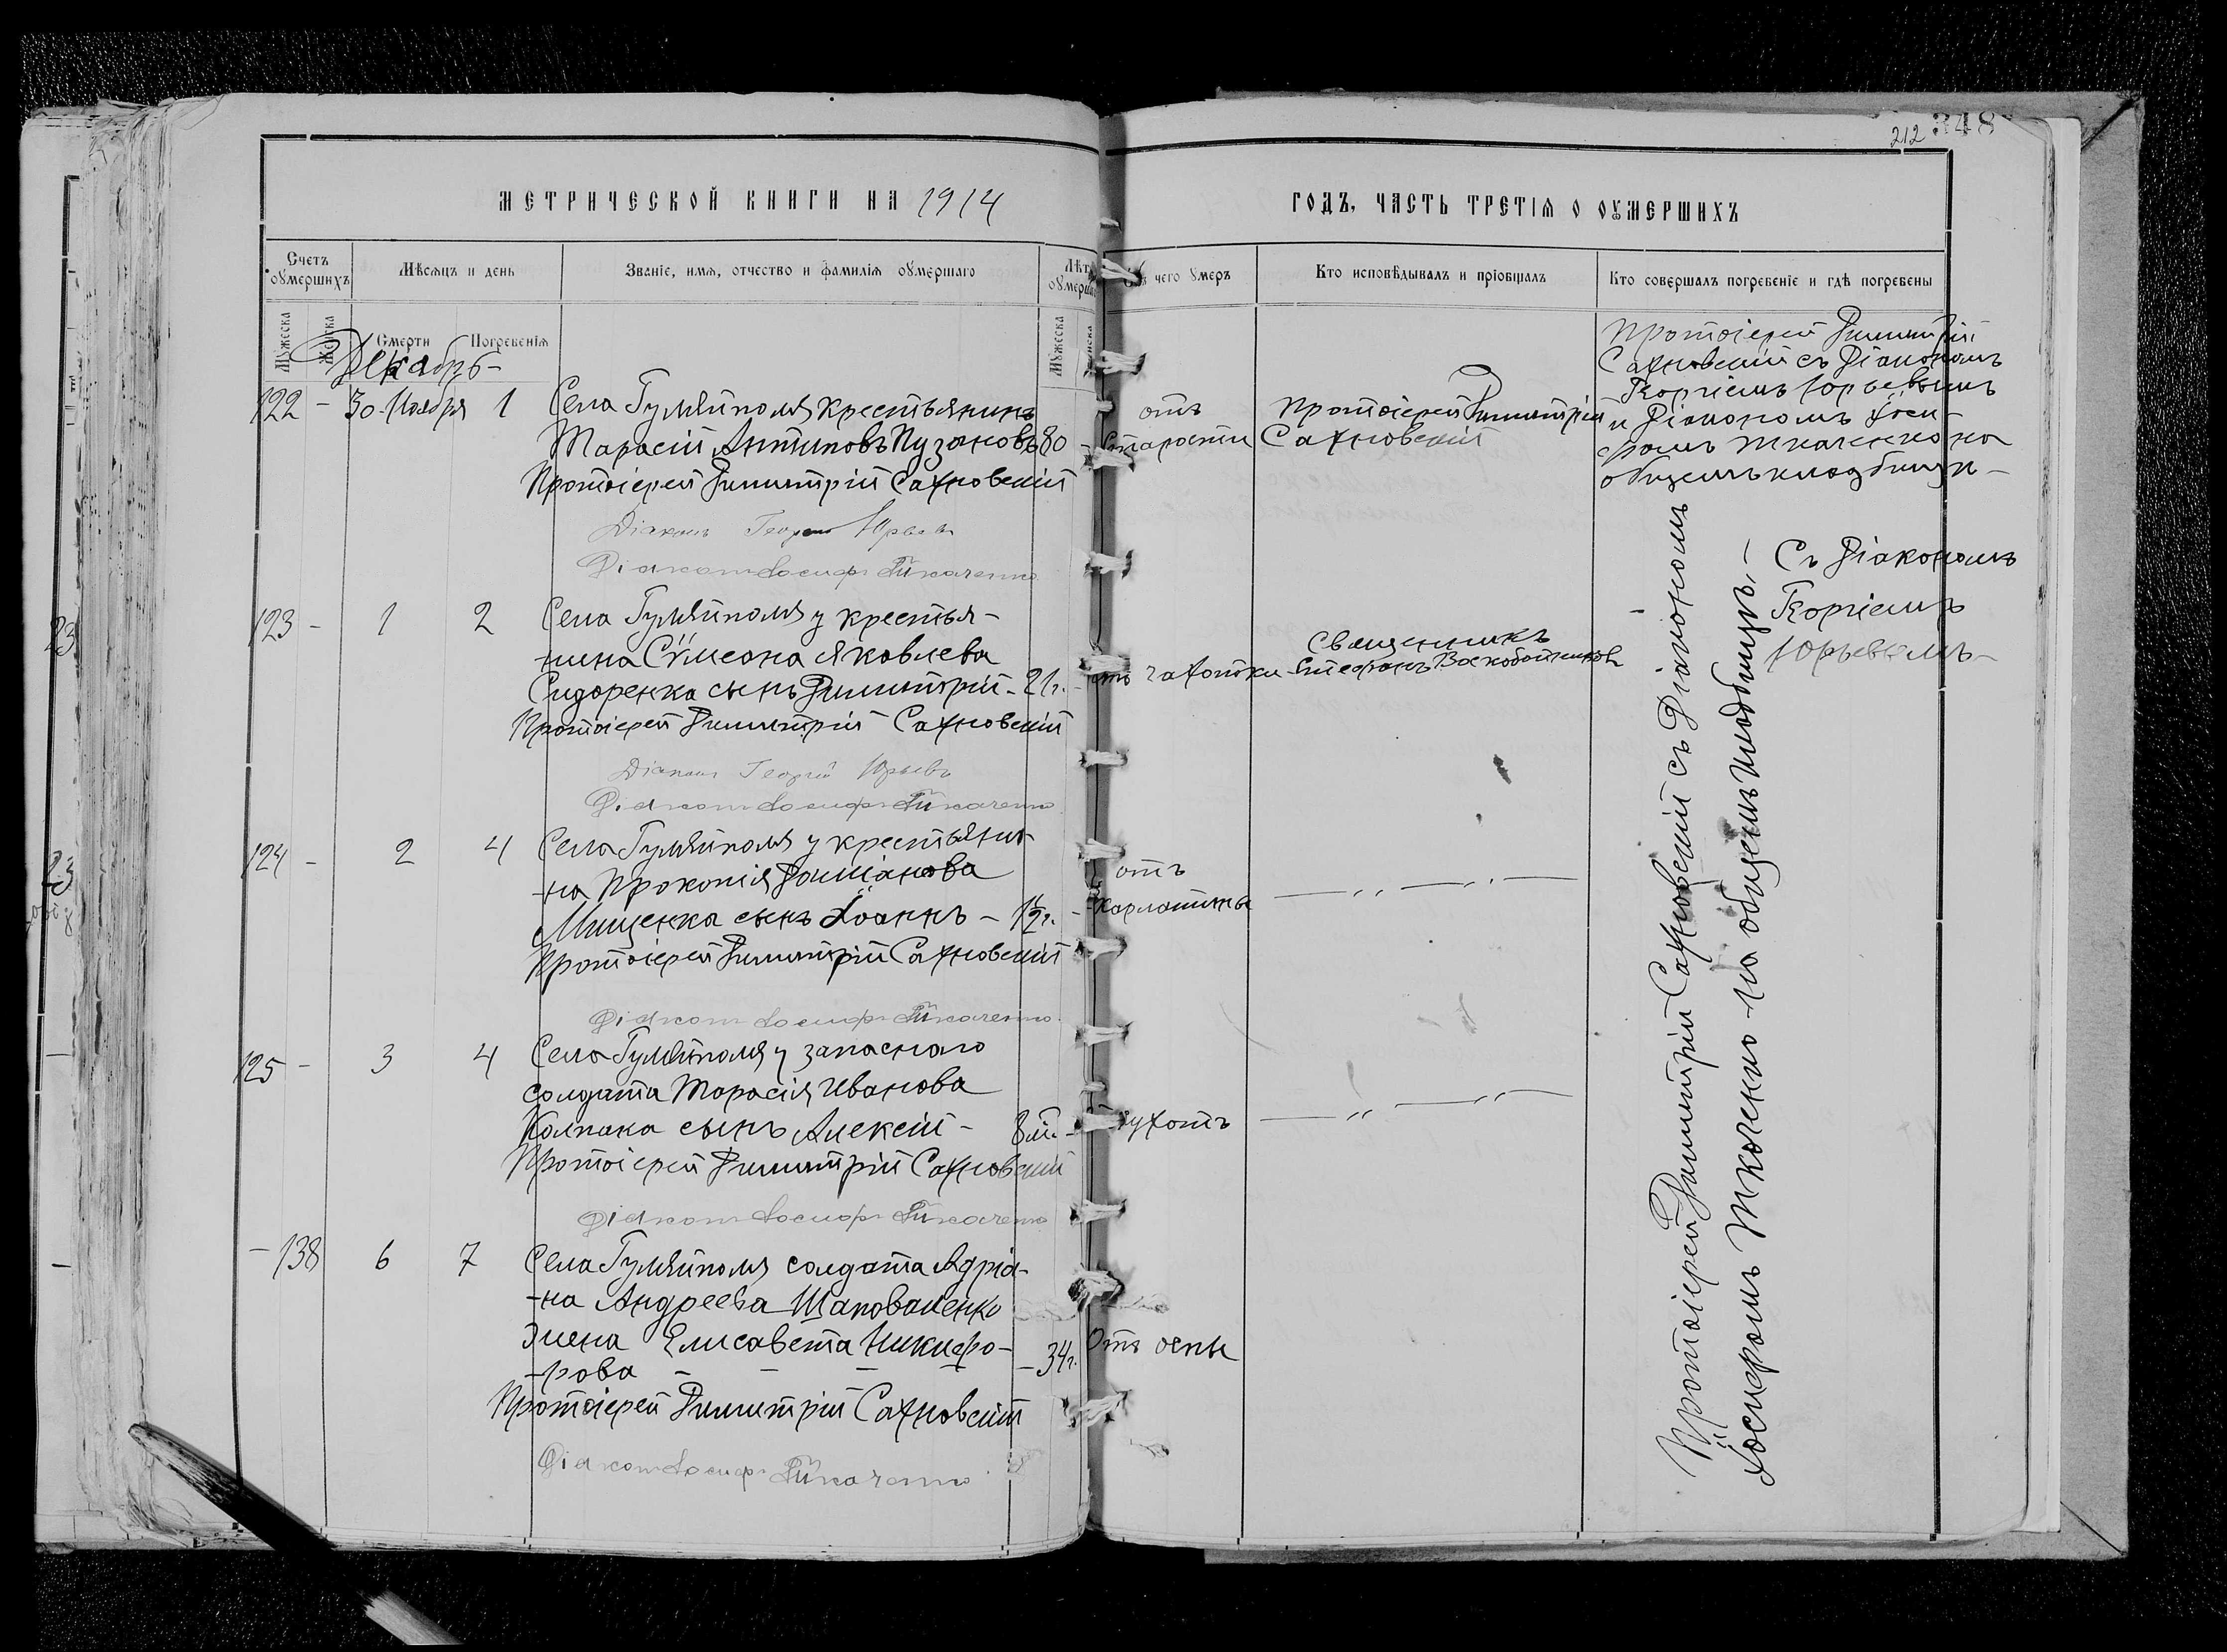 212 348
МЕТРИЧЕСКОЙ КНИГИ НА 1914
ГОДЪ, ЧАСТЬ ТРЕТІѦ О ОУМЕРШИХЪ
Счетъ оумершихъ
Мѣсѧцъ и день
Званіе, имѧ, отчество и фамиліѧ оумершаго
Лѣт
оумерша
чего умеръ
Кто исповѣдывалъ и пріобщалъ
Кто совершалъ погребеніе и гдѣ погребены
Мужеска
Женска
Смерти
Погребеніѧ
Мужеска
Декабрь
122 - 30 Ноября 1
Села Гуляйполя крестьянинъ
Тарасій Антиповъ Пузановъ 80 -
отъ
старости
Протоіерей Димитрій
Сахновскій
Протоіерей Димитрій
Сахновскій съ Діакономъ
Георгіемъ Юрьевымъ
и Діакономъ Іоси-
фомъ Ткаченко на
общемъ кладбищѣ -
Протоіерей Димитрій Сахновскій
Діаконъ Георгій Юрьевъ
Діаконъ Іосифъ Ткаченко
123 - 1 2
Села Гуляйполя у крестья-
-нина Сѷмеона Яковлева
Сидоренка сынъ Димитрій - 21 г. -
отъ чахотки
Священникъ
Стефанъ Воскобойниковъ
Съ Діакономъ
Георгіемъ
Юрьевымъ -
Протоіерей Димитрій Сахновскій
Діаконъ Георгій Юрьевъ
Діаконъ Іосифъ Ткаченко
124 - 2 4
Села Гуляйполя у крестьяни-
-на Прокопія Даміанова
Мищенка сынъ Іоаннъ - 1 1/2 г. -
отъ
скарлатины
— ,, — ,, —
Протоіерей Димитрій Сахновскій
Діаконъ Іосифъ Ткаченко
125 - 3 4
Села Гуляйполя у запаснаго
солдата Тарасія Иванова
Колпака сынъ Алексій - 8 м. -
— ,, — ,, —
Протоіерей Димитрій Сахновскій
Діаконъ Іосифъ Ткаченко
- 138 6 7
Села Гуляйполя солдата Адріа-
-на Андреева Шаповаленко
жена Елисавета Никифо-
-рова - - - - - 34 г.
Отъ оспы
Протоіерей Димитрій Сахновскій
Діаконъ Іосифъ Ткаченко
Протоіерей Димитрій Сахновскій съ Діакономъ
Іосифомъ Ткаченко на общемъ кладбищѣ -
23
23